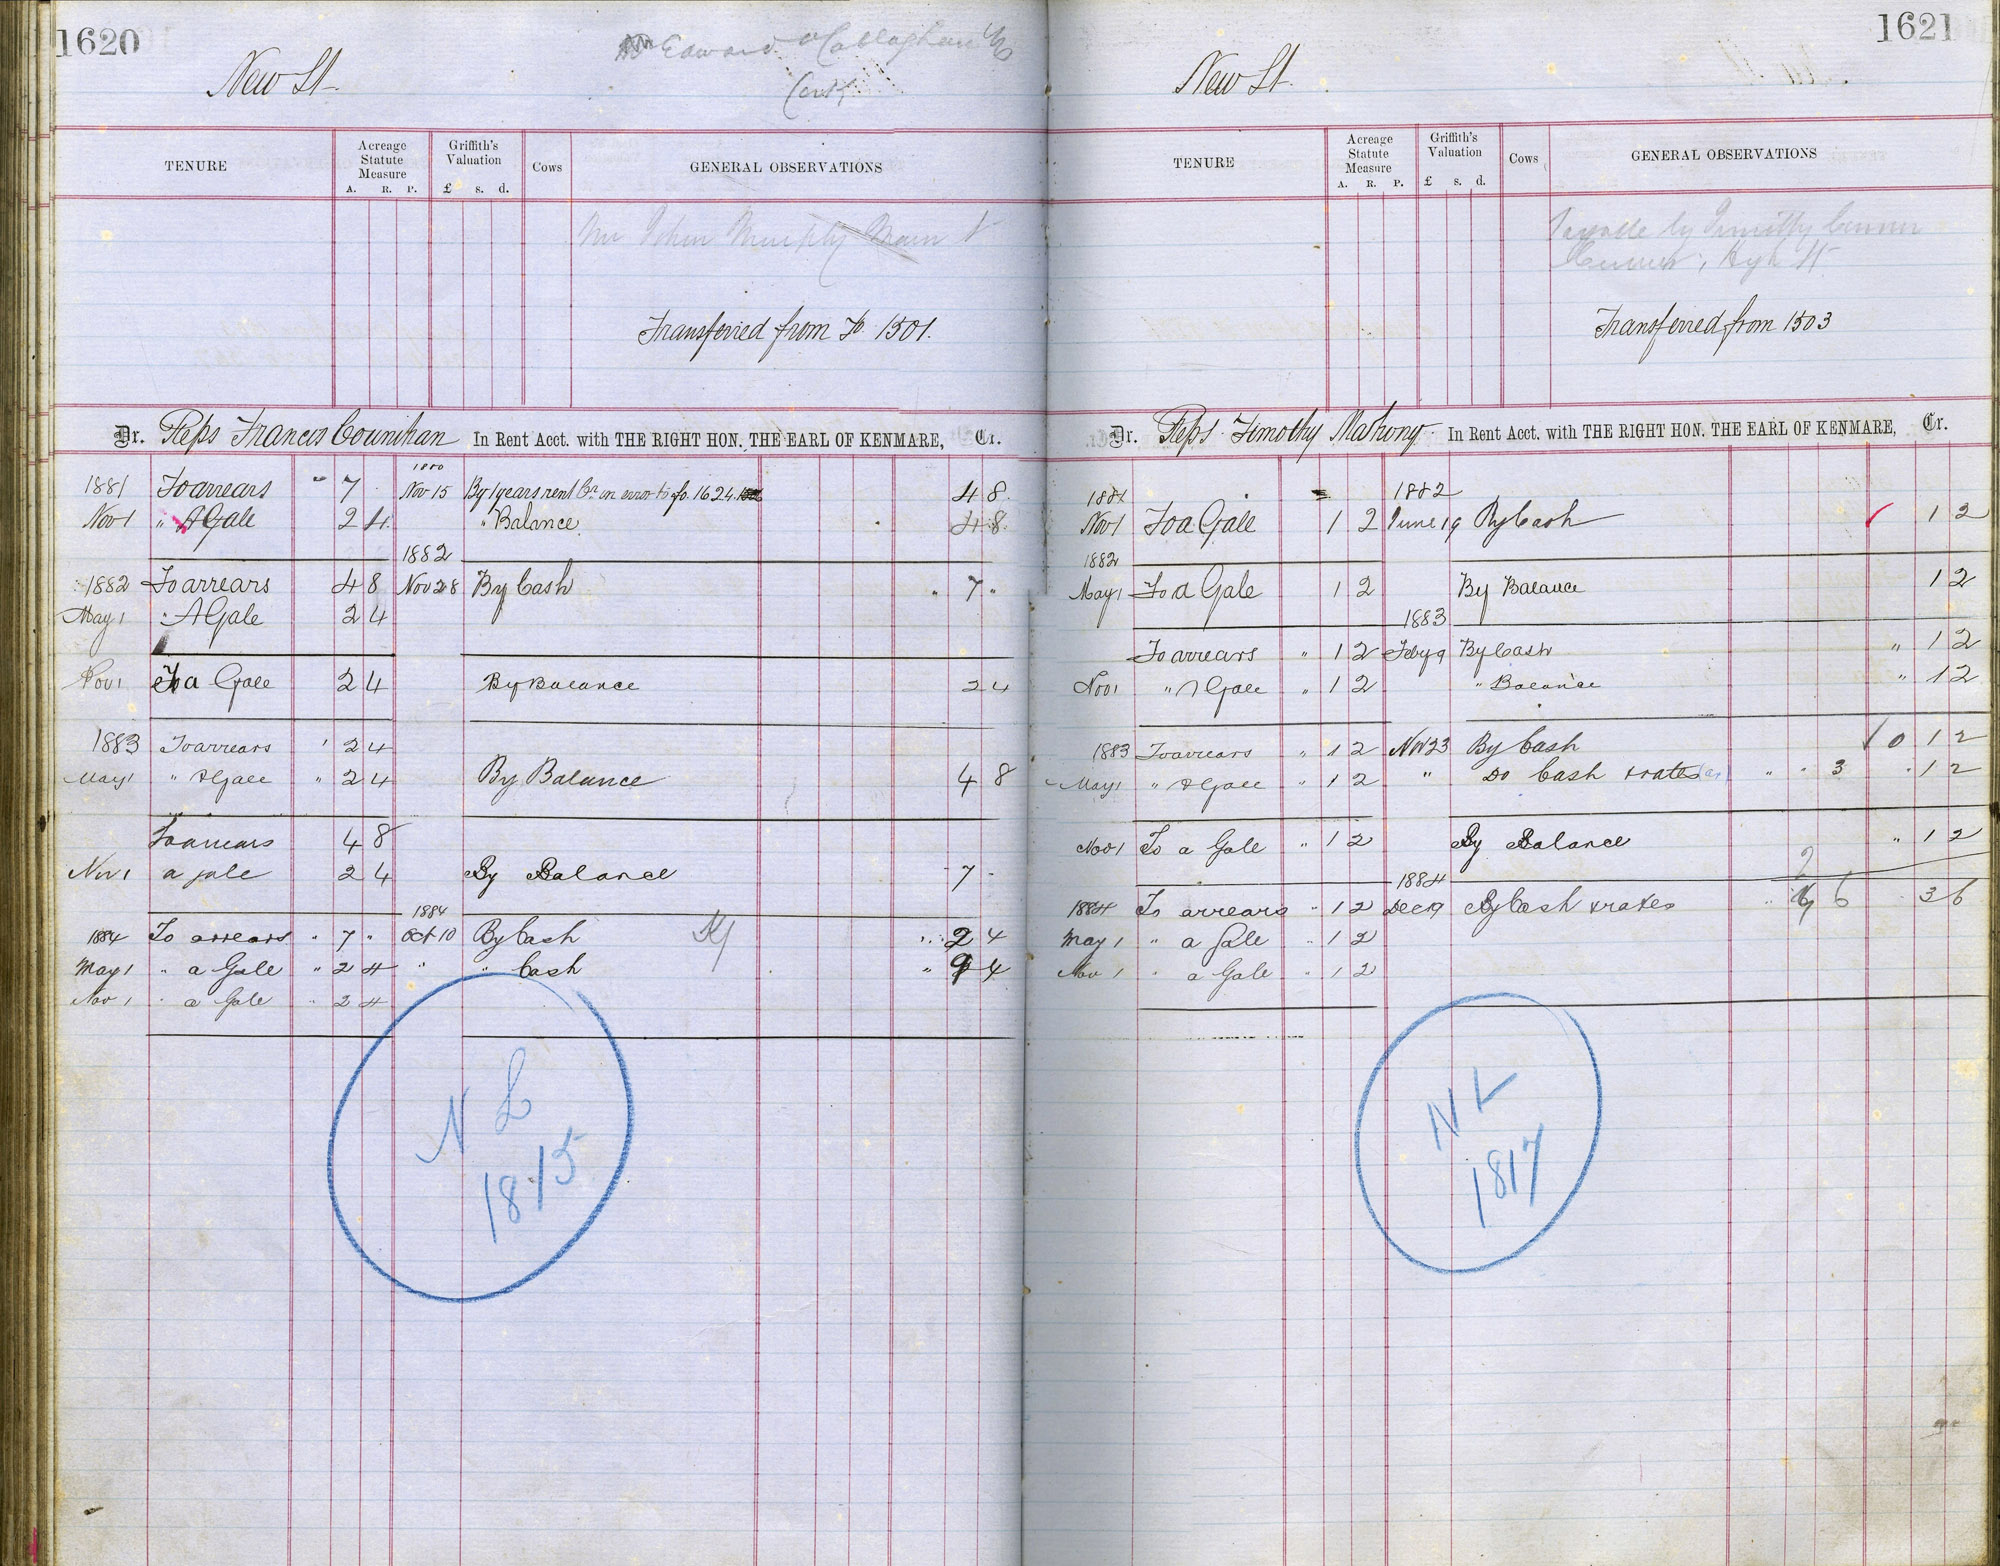 1620
New St.
Edward O'Callaghan
Cork
TENURE
Acreage Statute Measure
A. R. P.
Griffith's Valuation
£ s. d.
Cows
GENERAL OBSERVATIONS
Mr John Murphy Main St
Transferred from Fo. 1501.
Dr. Reps Francis Counihan In Rent Acct. with THE RIGHT HON. THE EARL OF KENMARE, Cr.
1880
1881 To arrears " 7 Nov 15 By 1 years rent Cr in error to fo. 1624 4 8
Nov 1 " A Gale 2 4 " Balance 4 8
1882
1882 To arrears 4 8 Nov 28 By Cash " 7 "
May 1 " A Gale 2 4
Nov 1 To a Gale 2 4 By Balance 2 4
1883 To arrears " 2 4
May 1 " A Gale " 2 4 By Balance 4 8
To arrears 4 8
Nov 1 a gale 2 4 By Balance 7 -
1884
1884 To arrears " 7 " Oct 10 By Cash 2 4
May 1 " a Gale " 2 4 " " Cash " 9 4
Nov 1 " a Gale " 2 4
N L
1815
1621
New St.
TENURE
Acreage Statute Measure
A. R. P.
Griffith's Valuation
£ s. d.
Cows
GENERAL OBSERVATIONS
by Timothy Connor
High St
Transferred from 1503
Dr. Reps Timothy Mahony In Rent Acct. with THE RIGHT HON. THE EARL OF KENMARE, Cr.
1881 1882
Nov 1 To a Gale 1 2 June 19 By Cash 1 2
1882
May 1 To a Gale 1 2 By Balance 1 2
1883
To arrears " 1 2 Feby 9 By Cash " 1 2
Nov 1 " A Gale " 1 2 " Balance " 1 2
1883 To arrears " 1 2 Nov 23 By Cash 0 1 2
May 1 " A Gale " 1 2 " Do Cash & rates " " 3 " 1 2
Nov 1 To a Gale " 1 2 By Balance " 1 2
1884
1884 To arrears " 1 2 Dec 19 By Cash & rates 6 3 6
May 1 " a Gale " 1 2
Nov 1 " a Gale " 1 2
N L
1817